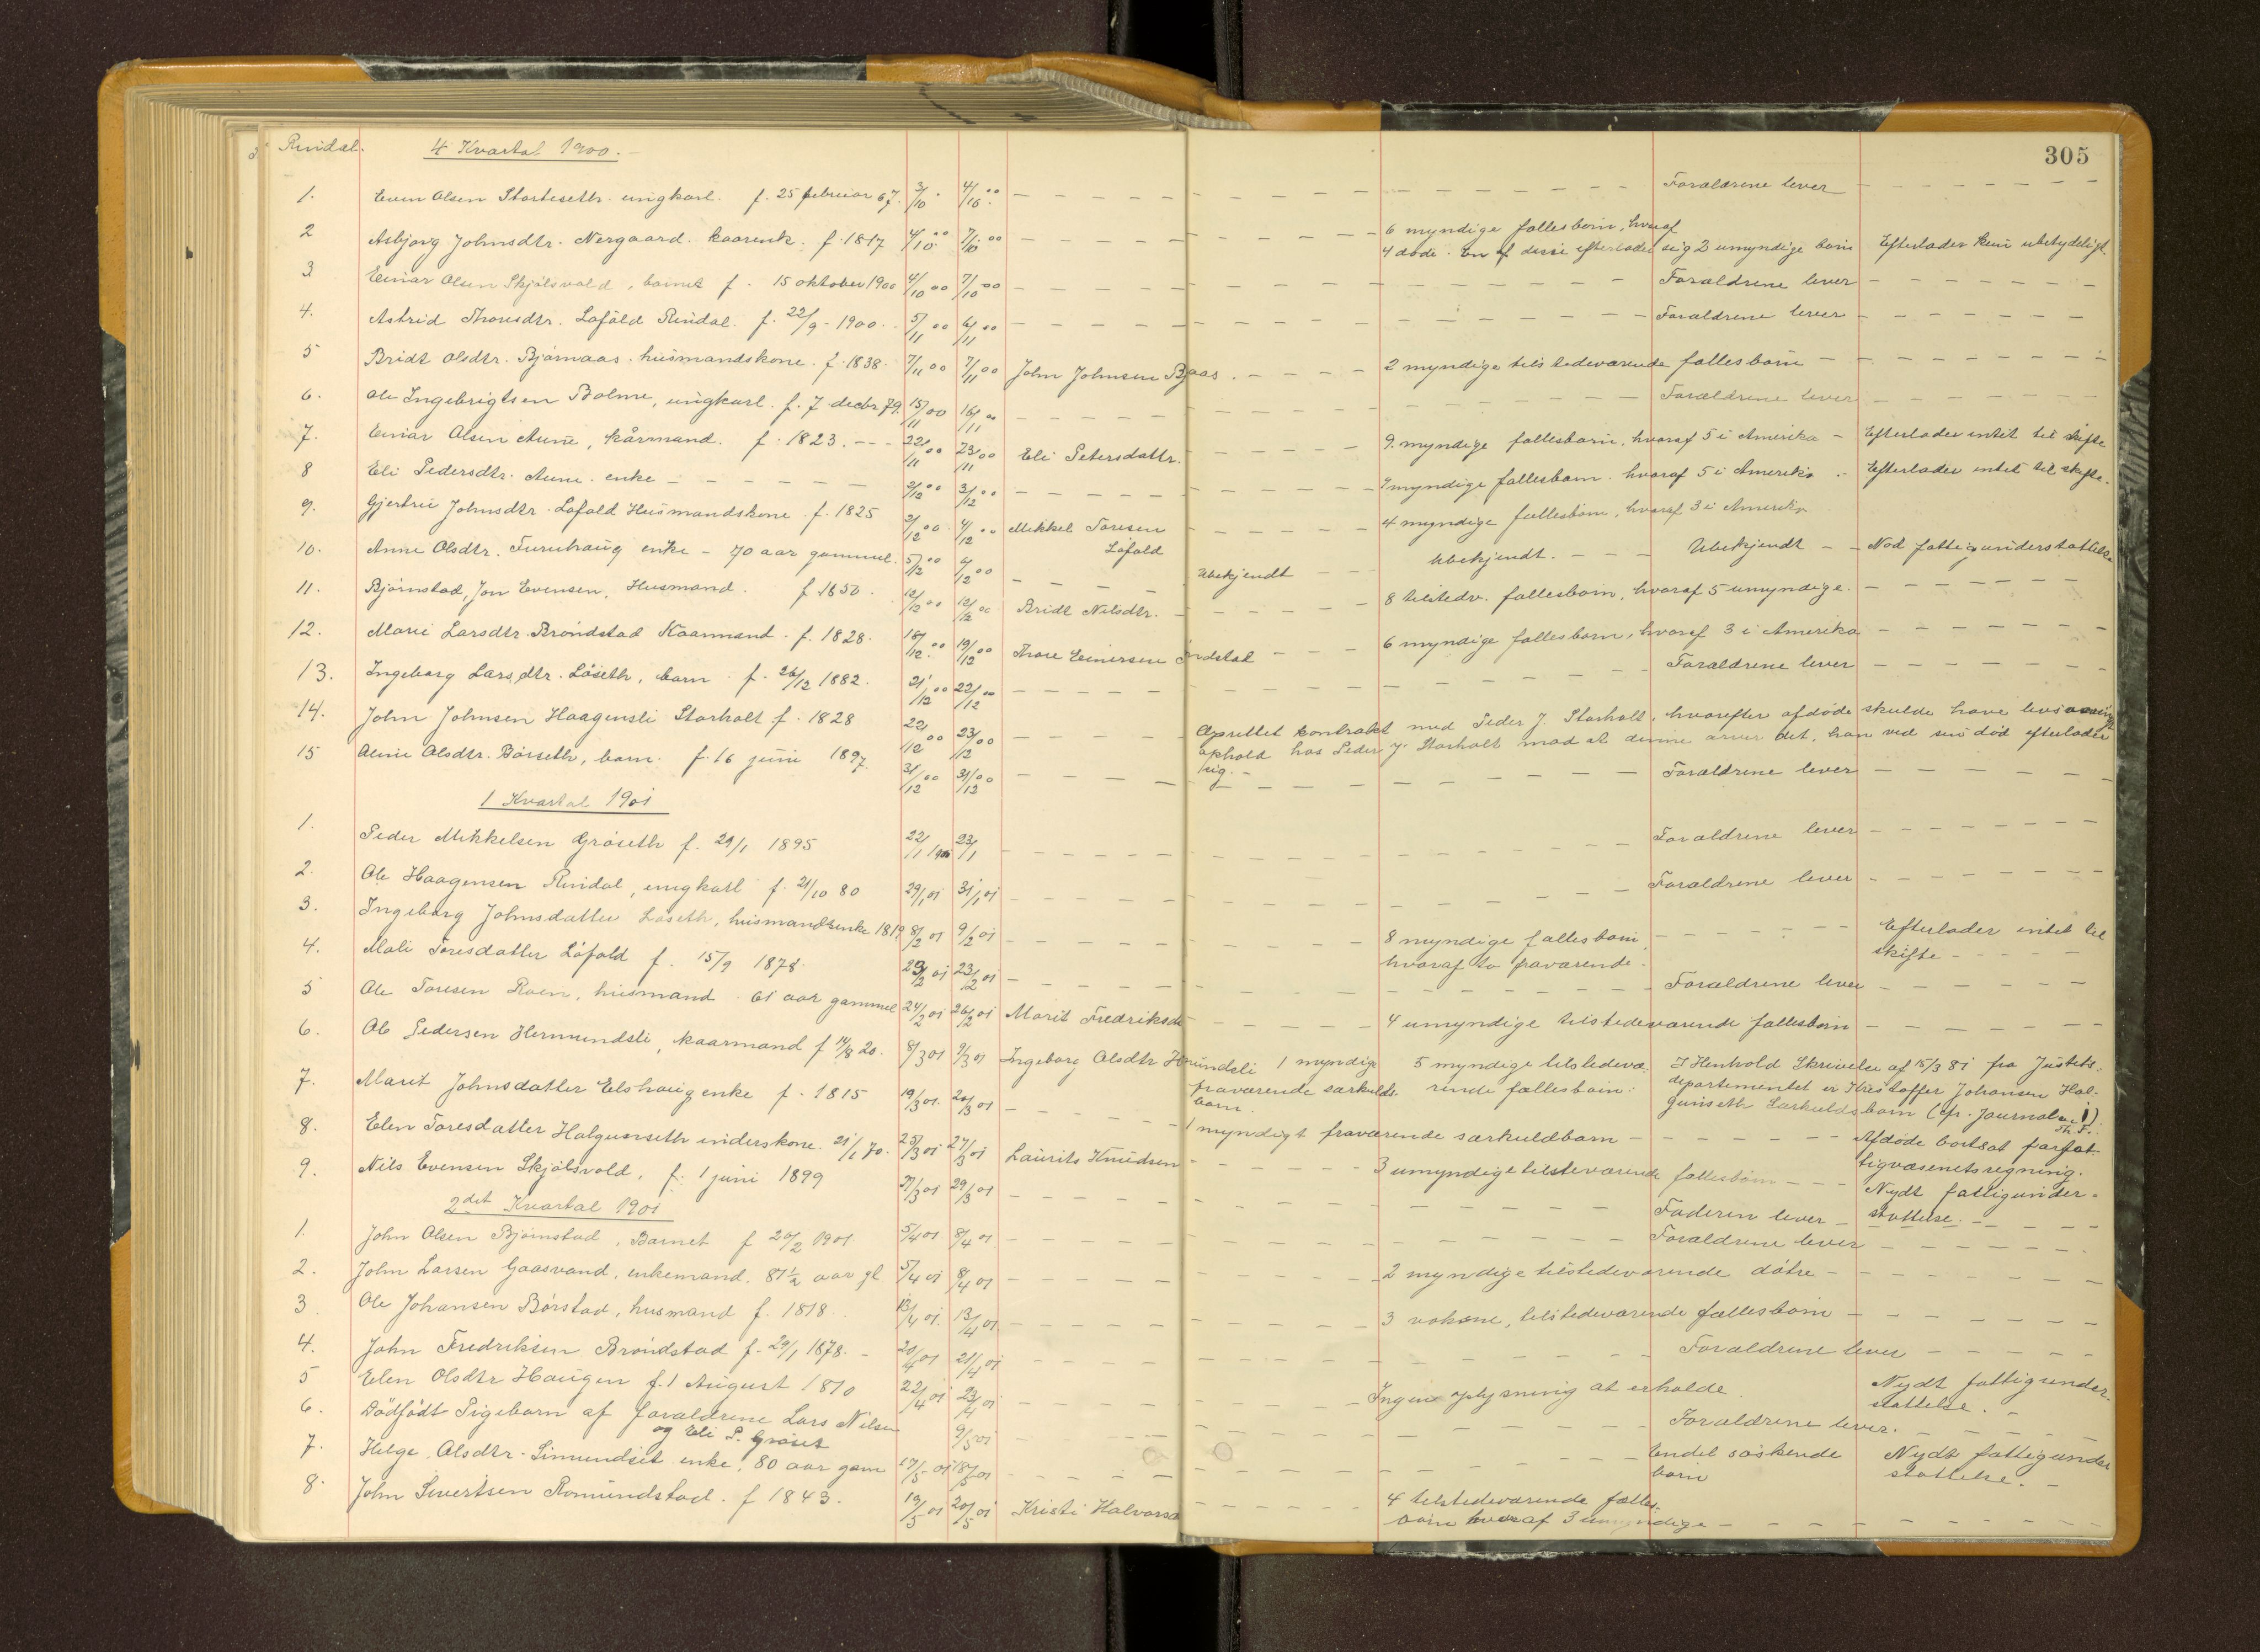 305
Rindal. 4 Kvartal 1900.
1. Even Olsen Storteseth. ungkarl. f. 25 februar 67. 3/10 4/10 00 Forældrene lever
2 Asbjørg Johnsdtr. Nergaard. kaarenk. f. 1817 4/10 00 7/10 00 6 myndige fællesbørn, hvoraf
4 døde. En af disse efterlader sig 2 umyndige børn Efterlader kun ubetydeligt.
3 Einar Olsen Skjølsvold, barnet f. 15 oktober 1900 4/10 00 7/10 00 Forældrene lever
4. Astrid Thoresdtr. Løfald Rindal. f. 22/9 - 1900. 5/11 00 6/11 00 Forældrene lever
5 Bridt Olsdtr. Bjørnaas. husmandskone. f. 1838. 7/11 00 7/11 00 John Johnsen Bjaas. 2 myndige tilstedeværende fællesbørn
6. Ole Ingebrigtsen Bolme, ungkarl. f. 7 decbr 79. 15/11 00 16/11 00 Forældrene lever
7. Einar Olsen Aune, kårmand. f. 1823. 22/11 00 23/11 00 Eli Petersdattr. 9 myndige fællesbørn, hvoraf 5 i Amerika - Efterlader intet til skifte
8 Eli Pedersdtr. Aune. enke 2/12 00 3/12 00 myndige fællesbørn. hvoraf 5 i Amerika - Efterlader intet til skifte.
9. Gjertrud Johnsdtr. Løfald Husmandskone f. 1825 2/12 00 4/12 00 Mikkel Toresen
Løfald 4 myndige fællesbørn, hvoraf 3 i Amerika
10. Anne Olsdtr. Furuhaug enke - 70 aar gammel. 5/12 00 6/12 00 Ubekjendt Ubekjendt. Ubekjendt - Nød fattigunderstøttelse
11. Bjørnstad, Jon Evensen, Husmand. f 1850. 12/12 00 12/12 00 Bridt Nilsdtr. 8 tilstedv. fællesbørn, hvoraf 5 umyndige.
12. Marie Larsdtr. Brøndstad Kaarmand. f. 1828. 18/12 00 19/12 00 Thore Einersen Brøndstad 6 myndige fællesbørn, hvoraf 3 i Amerika
13. Ingeborg Larsdtr. Løseth, barn f. 26/12 1882. 21/12 00 22/12 00 Forældrene lever
14. John Johnsen Haagensli Storholt f. 1828 22/12 00 23/12 00 Oprettet kontrakt med Peder J. Storholt, hvorefter afdøde skulde have livsvarig
ophold hos Peder J. Storholt mod at denne arver det, han ved sin død efterlader
sig.
15 Aune Olsdtr. Børseth, barn. f. 16 juni 1897 31/12 00 31/12 00 Forældrene lever
1 Kvartal 1901
1. Peder Mikkelsen Grøseth f. 29/1 1895 22/1 1901 23/1 Forældrene lever
2. Ole Haagensen Rindal, ungkarl f. 21/10 80 29/1 01 31/1 01 Forældrene lever
3. Ingeborg Johnsdatter Løseth, husmandsenke 1819 8/2 01 9/2 01 8 myndige fællesbørn, Efterlader intet til
hvoraf to fraværende. skifte
4. Mali Toresdatter Løfald f. 15/9 1878. 23/2 01 23/2 01 Forældrene lever
5 Ole Toresen Roen, husmand. 61 aar gammel 24/2 01 26/2 01 Marit Fredriksda 4 umyndige tilstedeværende fællesbørn
6. Ole Pedersen Hermundsli, kaarmand f 14/8 20. 8/3 01 9/3 01 Ingeborg Olsdtr Hmundsli 1 myndige 5 myndige tilstedevæ. I Henhold Skrivelse af 15/3 81 fra Justits.
fraværende særkulds. rende fællesbørn. departementet er Kristoffer Johansen Hal-
barn. gunseth Særkuldsbarn (cfr. Journal n. 1).
Th. F.
7. Marit Johnsdatter Elshaug enke f. 1815 19/3 01. 20/3 01 1 myndigt fraværende særkuldbarn Afdøde bortsat for fat-
tigvæsenets regning.
8. Elen Toresdatter Halgunseth inderskone. 21/1 70. 25/3 01 27/3 01 Laurits Knudsen 3 umyndige tilsteværende fællesbørn Nydt fattigunder-
støttelse.
9. Nils Evensen Skjølsvold, f. 1 juni 1899 27/3 01 29/3 01 Faderen lever
2det Kvartal 1901
1. John Olsen Bjørnstad, Barnet f 20/2 1901 5/4 01 8/4 01 Forældrene lever
2. John Larsen Gaasvand, enkemand. 87 1/2 aar gl 5/4 01 8/4 01 2 myndige tilstedeværende døtre
3 Ole Johansen Børstad, husmand f. 1818 13/4 01. 13/4 01 3 voksne, tilstedeværende fællesbørn
4. John Fredriksen Brøndstad f. 29/1 1878. 20/4 01 21/4 01 Forældrene lever
5 Elen Olsdtr Haugen f. 1 August 1810 22/4 01 23/4 01 Ingen oplysning at erholde. Nydt fattigunder-
støttelse.
6. Dødfødt Pigebarn af forældrene Lars Nilsen
og Eli P. Grøset 9/5 01 Forældrene lever.
7. Helge Olsdtr. Simundset enke, 80 aar gam 17/5 01 18/5 01 Endel søskende Nydt fattigunder
børn støttelse.
8. John Sivertsen Romundstad. f 1843. 19/5 01 20/5 01 Kristi Halvorsd 4 tilstedeværende fælles-
børn hvoraf 3 umyndige